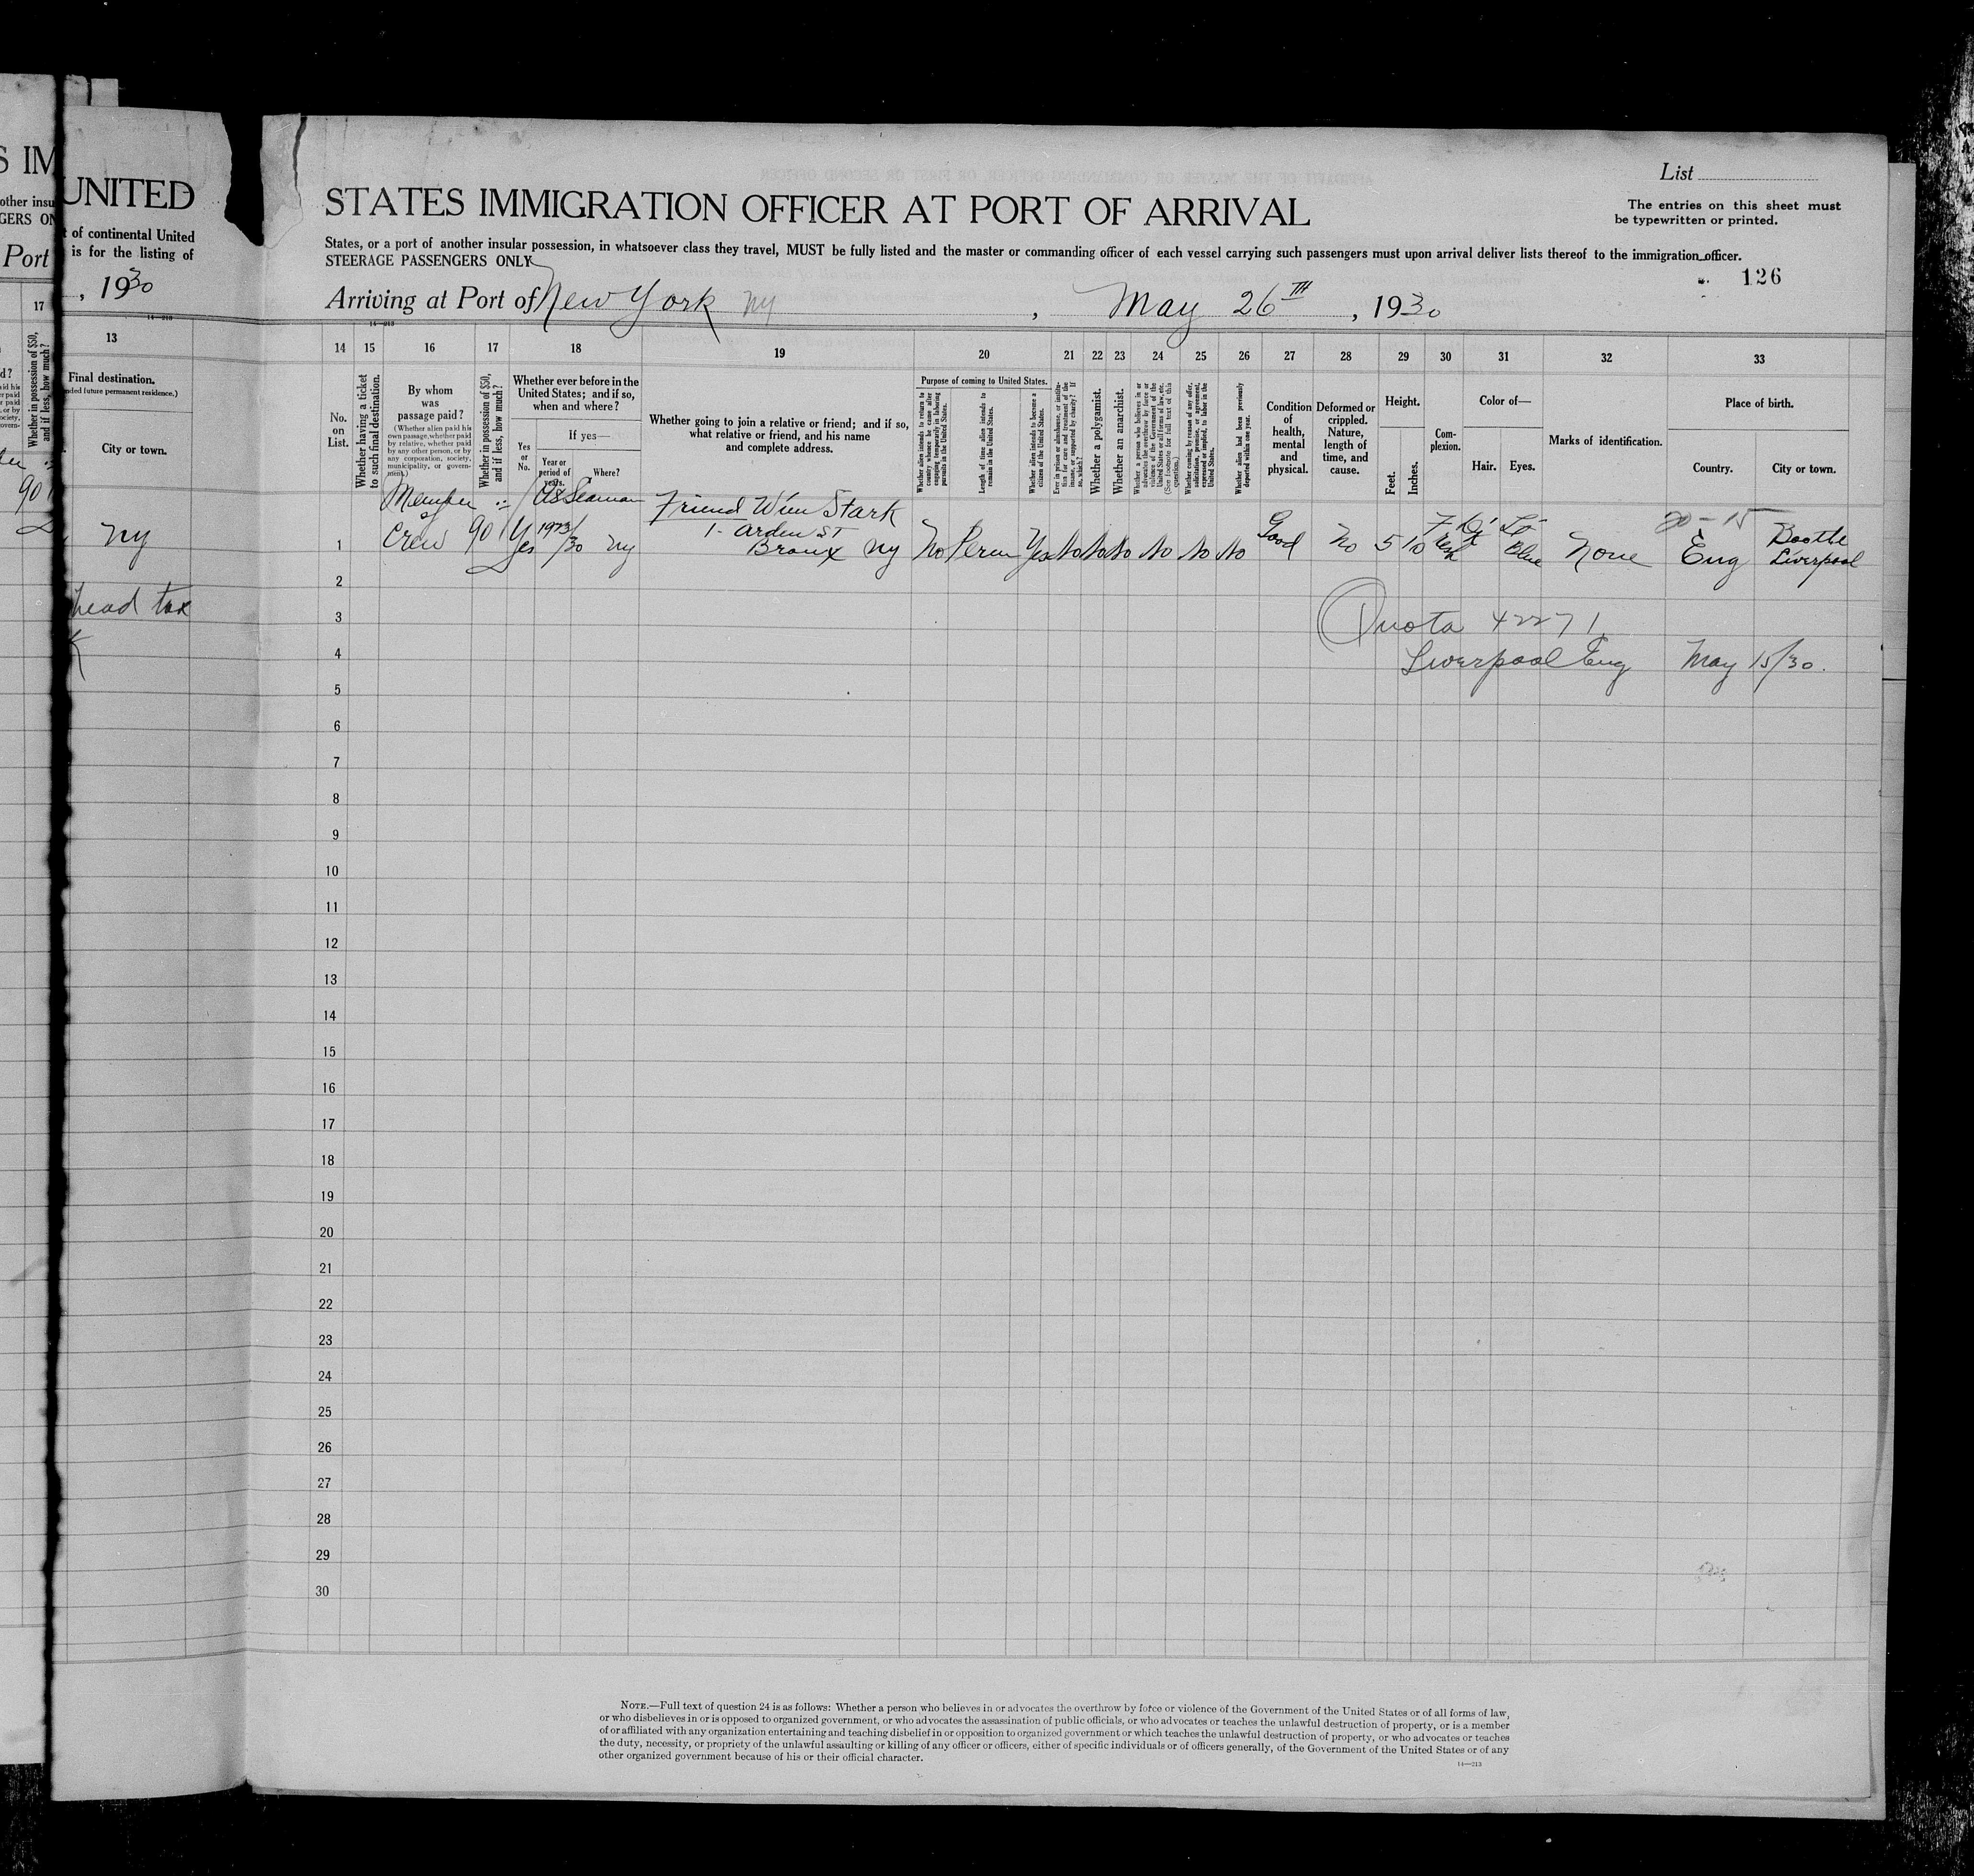 S IM
other insu
GERS ON
Port
17
Whether in possession of $50, and if less, how much?
90
UNITED
t of continental United
is for the listing of
, 1930
14—213
13
Final destination.
nded future permanent residence.)
City or town.
NY
head tax
List
The entries on this sheet must
be typewritten or printed.
STATES IMMIGRATION OFFICER AT PORT OF ARRIVAL
States, or a port of another insular possession, in whatsoever class they travel, MUST be fully listed and the master or commanding officer of each vessel carrying such passengers must upon arrival deliver lists thereof to the immigration officer.
STEERAGE PASSENGERS ONLY
126
Arriving at Port of New York NY, May 26TH, 1930
14—213
14 15 16 17 18 19 20 21 22 23 24 25 26 27 28 29 30 31 32 33
No. on List.
Whether having a ticket to such final destination.
By whom was passage paid?
(Whether alien paid his own passage, whether paid by relative, whether paid by any other person, or by any corporation, society, municipality, or government.)
Whether in possession of $50, and if less, how much?
Whether ever before in the United States; and if so, when and where?
Yes or No.
If yes—
Year or period of years.
Where?
Whether going to join a relative or friend; and if so, what relative or friend, and his name and complete address.
Purpose of coming to United States.
Whether alien intends to return to country whence he came after engaging temporarily in laboring pursuits in the United States.
Length of time alien intends to remain in the United States.
Whether alien intends to become a citizen of the United States.
Ever in prison or almshouse, or institution for care and treatment of the insane, or supported by charity? If so, which?
Whether a polygamist.
Whether an anarchist.
Whether a person who believes in or advocates the overthrow by force or violence of the Government of the United States or all forms of law, etc. (See footnote for full text of this question.)
Whether coming by reason of any offer, solicitation, promise, or agreement, expressed or implied, to labor in the United States.
Whether alien had been previously deported within one year.
Condition of health, mental and physical.
Deformed or crippled. Nature, length of time, and cause.
Height.
Feet.
Inches.
Complexion.
Color of—
Hair.
Eyes.
Marks of identification.
Place of birth.
Country.
City or town.
Member As Seaman Friend Wm Stark
of 1- Arden ST 20-15
1 Crew 90 Yes 1923/30 NY Bronx NY No Perm Yes No No No No No No Good No 5 10 Fresh Dk Blue None Eng Bootle Liverpool
2
3 Quota 42271
4 Liverpool Eng May 15/30.
5
6
7
8
9
10
11
12
13
14
15
16
17
18
19
20
21
22
23
24
25
26
27
28
29
30
NOTE.—Full text of question 24 is as follows: Whether a person who believes in or advocates the overthrow by force or violence of the Government of the United States or of all forms of law,
or who disbelieves in or is opposed to organized government, or who advocates the assassination of public officials, or who advocates or teaches the unlawful destruction of property, or is a member
of or affiliated with any organization entertaining and teaching disbelief in or opposition to organized government or which teaches the unlawful destruction of property, or who advocates or teaches
the duty, necessity, or propriety of the unlawful assaulting or killing of any officer or officers, either of specific individuals or of officers generally, of the Government of the United States or of any
other organized government because of his or their official character.
14—213